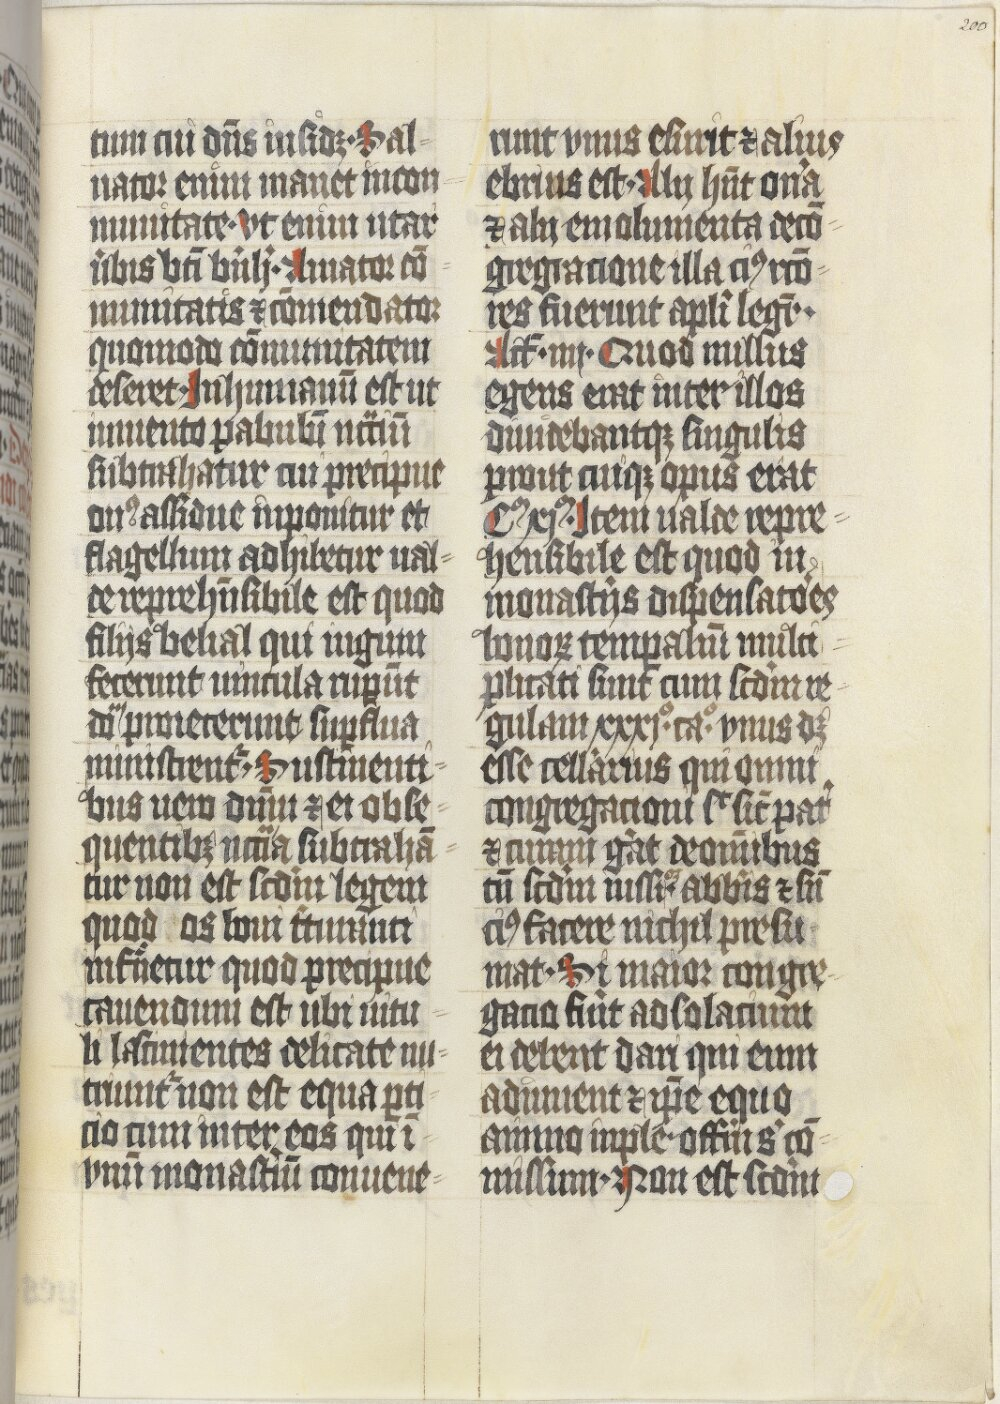 200
tum cui dn̄s insidꝫ· Sal-
uator enim manet in com
munitate· Vt enim utar
ūbis bt̄i b̄nh̄· Amator cō-
munitatis ⁊ cōmendator
quomodo cōmunitatem
deseret· Inhumanū est ut
iumento pabulū nc̄ciū
subtrahatur cui precipue
on⁹ assidue inponitur et
flagellum adhibetur ual-
de reprehn̄sibile est quod
filijs belial qui iugum
fecerunt uincula rup̄ūt
dn̄i proiecerunt sup̄flua
ministrent᷑· Sustinenti-
bus uero dn̄m ⁊ ei obse-
quentibꝫ nccīa subtrahā-
tur non est scdm̄ legem
quod os boui t̄turanti
infrēetur quod precipue
cauendum est ubi uitu-
li lasciuientes delicate nu-
triunt᷑ non est equa ꝑti-
cio cum inter eos qui ī
vnū monast̄iū conuene-
runt vnus esurit ⁊ alius
ebrius est· Alij hn̄t on̄a
⁊ alij emolumenta de cō-
gregracione illa cui⁹ rcō-
res fuerunt apl̄i legr̄·
Act̄· iiii· Quod nullus
egens erat inter illos
diuidebantqꝫ singulis
prout cuiqꝫ opus erat
C⁹ xj⁹· Item ualde repre-
hensibile est quod in
monast̄ijs dispensatōes
bonoꝝ temꝑaliū multi-
plicati sunt cum scdm̄ re-
gulam xxxjº· caº· vnus dꝫ
esse cellārius qui omni
congregacioni sᵗ sic̄ pat̄
⁊ curam gāt de om̄ibus
tn̄ scdm̄ iussi᷑ abb̄is ⁊ sn̄
ei⁹ facere nichil presu
mat· Si maior congre-
gacio fūit ad solacium
ei debent dari qui eum
adiuuent ⁊ ip̄e equo
animo inpleˢ offm̄ sˢ cō-
missum· Non est scdm̄